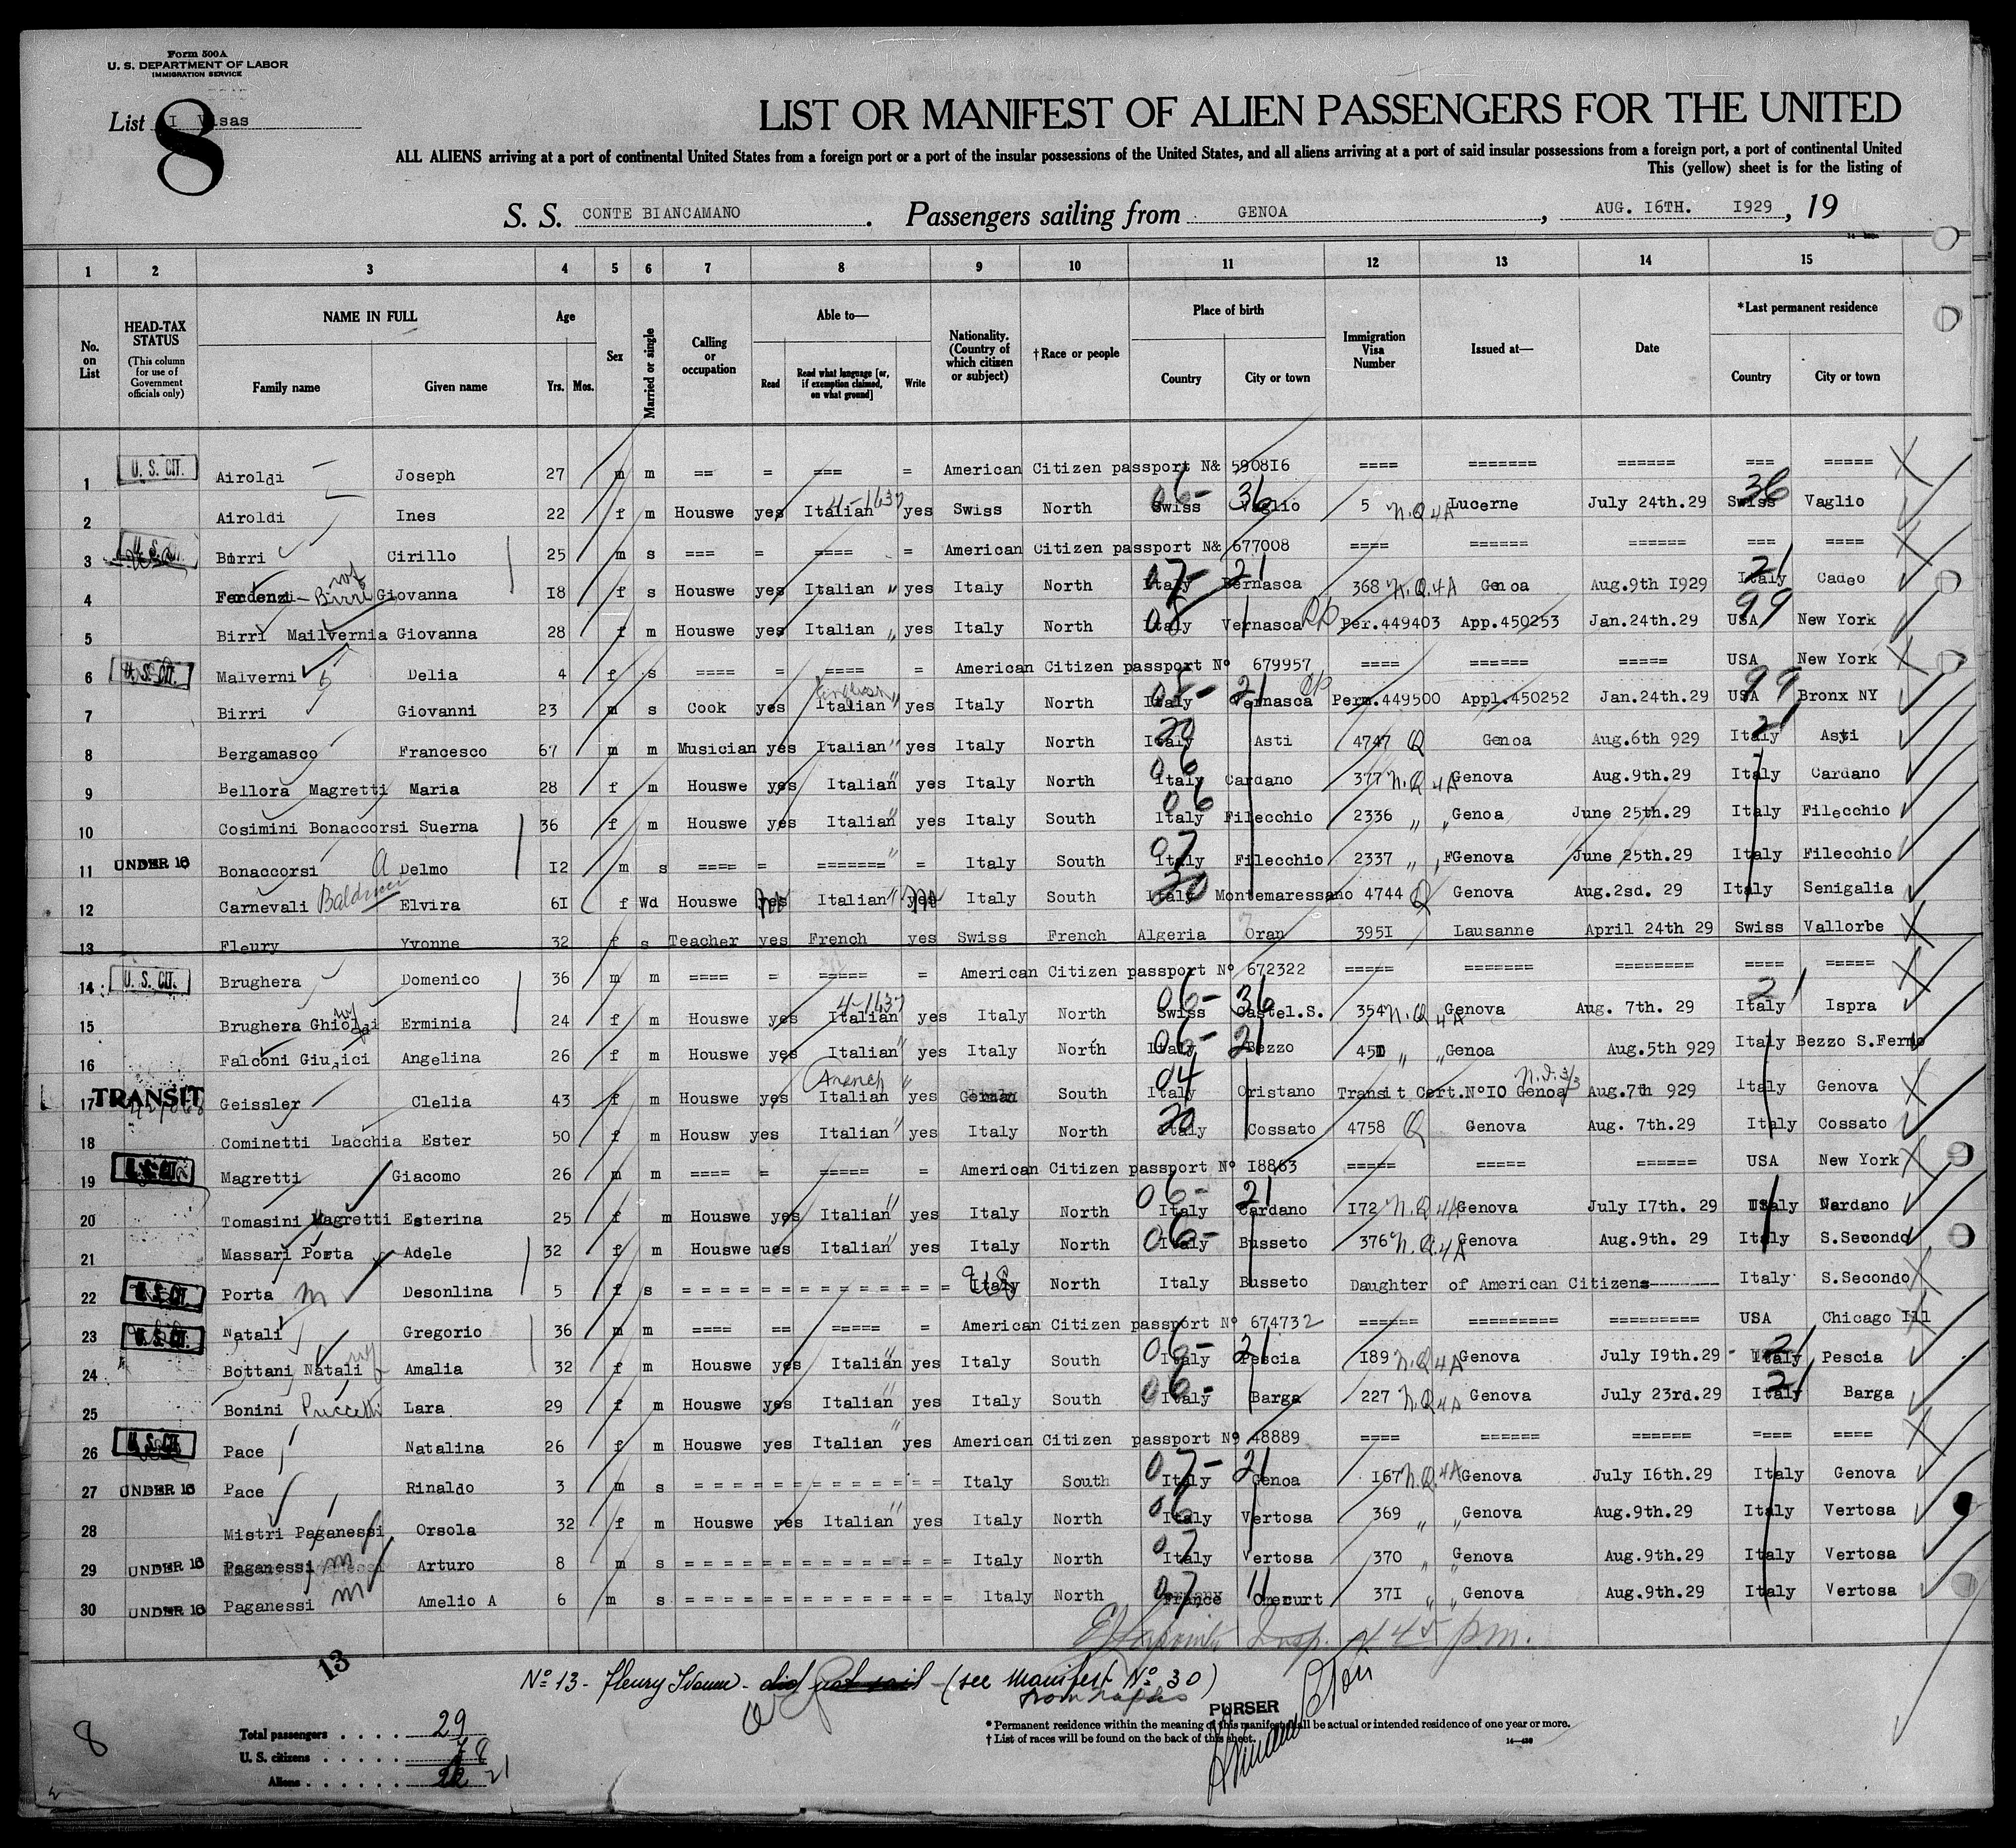 Form 500A
U. S. DEPARTMENT OF LABOR
IMMIGRATION SERVICE
List I Visas
8
LIST OR MANIFEST OF ALIEN PASSENGERS FOR THE UNITED
ALL ALIENS arriving at a port of continental United States from a foreign port or a port of the insular possessions of the United States, and all aliens arriving at a port of said insular possessions from a foreign port, a port of continental United
This (yellow) sheet is for the listing of
S. S. CONTE BIANCAMANO. Passengers sailing from GENOA, AUG. I6TH. I929, 19
1 2 3 4 5 6 7 8 9 10 11 12 13 14 15
No. on List
HEAD-TAX STATUS (This column for use of Government officials only)
NAME IN FULL Family name Given name
Age Yrs. Mos.
Sex
Married or single
Calling or occupation
Able to— Read Read what language [or, if exemption claimed, on what ground] Write
Nationality. (Country of which citizen or subject)
†Race or people
Place of birth Country City or town
Immigration Visa Number
Issued at—
Date
*Last permanent residence Country City or town
1 U. S. CIT. Airoldi Joseph 27 m m == = === = American Citizen passport N& 5908I6 ==== ======= ====== === =====
2 Airoldi Ines 22 f m Houswe yes Italian 4-1637 yes Swiss North Swiss 06- 36 Vaglio 5 N.Q.4A Lucerne July 24th.29 Swiss 36 Vaglio
3 Birri Cirillo 25 m s === = ==== = American Citizen passport N& 677008 ==== ====== ====== === ====
4 Birri Giovanna I8 f s Houswe yes Italian " yes Italy North Italy 07- 21 Bernasca 368 N.Q.4A Genoa Aug.9th I929 Italy 21 Cadeo
5 Birri Mailvernia Giovanna 28 f m Houswe yes Italian " yes Italy North Italy 08 Vernasca Per.449403 App.450253 Jan.24th.29 USA 99 New York
6 U. S. CIT. Malverni Delia 4 f s ==== = ==== = American Citizen passport Nº 679957 ==== ====== ===== USA New York
7 Birri Giovanni 23 m s Cook yes Italian " yes Italy North Italy 21 Vernasca Perm.449500 Appl.450252 Jan.24th.29 USA 99 Bronx NY
8 Bergamasco Francesco 67 m m Musician yes Italian " yes Italy North Italy 20 Asti 4747 Q Genoa Aug.6th 929 Italy 21 Asti
9 Bellora Magretti Maria 28 f m Houswe yes Italian " yes Italy North Italy 06 Cardano 377 N.Q.4A Genova Aug.9th.29 Italy Cardano
10 Cosimini Bonaccorsi Suerna 36 f m Houswe yes Italian " yes Italy South Italy 06 Filecchio 2336 " " Genoa June 25th.29 Italy Filecchio
11 UNDER 16 Bonaccorsi A Delmo I2 m s ==== = ======= " = Italy South Italy 07 Filecchio 2337 " Genova June 25th.29 Italy Filecchio
12 Carnevali Elvira 6I f Wd Houswe yes Italian " yes Italy South Italy 20 Montemaressano 4744 Q Genova Aug.2sd. 29 Italy Senigalia
13 Fleury Yvonne 32 f s Teacher yes French yes Swiss French Algeria Oran 395I Lausanne April 24th 29 Swiss Vallorbe
14 U. S. CIT. Brughera Domenico 36 m m ==== = ===== = American Citizen passport Nº 672322 ===== ======= ======== ==== =====
15 Brughera Ghioldi Erminia 24 f m Houswe yes Italian 4-1637 yes Italy North Swiss 06- 36 Castel.S. 354 N.Q.4A Genova Aug. 7th. 29 Italy 21 Ispra
16 Falconi Giudici Angelina 26 f m Houswe yes Italian " yes Italy North Italy 06- 21 Bezzo " " Genoa Aug.5th 929 Italy Bezzo S.Fermo
17 TRANSIT Geissler Clelia 43 f m Houswe yes French Italian " yes German South Italy 04 Oristano Transit Cert.NºI0 Genoa Aug.7th 929 Italy Genova
18 Cominetti Lacchia Ester 50 f m Housw yes Italian " yes Italy North Italy 20 Cossato 4758 Q Genova Aug. 7th.29 Italy Cossato
19 U. S. CIT. Magretti Giacomo 26 m m ==== = ===== = American Citizen passport Nº I8863 ===== ===== ====== USA New York
20 Tomasini Magretti Esterina 25 f m Houswe yes Italian " yes Italy North Italy 06- 21 Cardano I72 N.Q.4A Genova July I7th. 29 Italy
21 Massari Porta Adele 32 f m Houswe ues Italian " yes Italy North Italy 06- Busseto 376 N.Q.4A Genova Aug.9th. 29 Italy S.Secondo
22 U. S. CIT. Porta m Desonlina 5 f s = = = = = = = = = = = = = = Italy North Italy Busseto Daughter of American Citizens------- Italy S.Secondo
23 U. S. CIT. Natali Gregorio 36 m m ==== == ===== = American Citizen passport Nº 674732 ====== ========= ========= USA Chicago Ill
24 Bottani Natali Amalia 32 f m Houswe yes Italian " yes Italy South Italy 06- 21 Pescia I89 N.Q.4A Genova July I9th.29 Italy 21 Pescia
25 Bonini Puccetti Lara 29 f m Houswe yes Italian " yes Italy South Italy 06- Barga 227 N.Q.4A Genova July 23rd.29 Italy 21 Barga
26 U. S. CIT. Pace Natalina 26 f m Houswe yes Italian " yes American Citizen passport Nº 48889 ==== ====== ====== ==== ====
27 UNDER 16 Pace Rinaldo 3 m s = = = = = = = = = = = = = Italy South Italy 07- 21 Genoa I67 N.Q.4A Genova July I6th.29 Italy Genova
28 Mistri Paganessi Orsola 32 f m Houswe yes Italian " yes Italy North Italy 06 Vertosa 369 " " Genova Aug.9th.29 Italy Vertosa
29 UNDER 16 Paganessi m Arturo 8 m s = = = = = = = = = = = = = = Italy North Italy 07 Vertosa 370 " Genova Aug.9th.29 Italy Vertosa
30 UNDER 16 Paganessi m Amelio A 6 m s = = = = = = = = = = = = = = Italy North France 07 11 37I " " Genova Aug.9th.29 Italy Vertosa
Insp. 45 pm.
13
Nº 13 - Fleury Yvonne - did not sail - (see Manifest Nº 30)
from Naples
PURSER
8
Total passengers . . . . 29
U. S. citizens . . . . . 8
Aliens . . . . . . 22 21
* Permanent residence within the meaning of this manifest shall be actual or intended residence of one year or more.
† List of races will be found on the back of this sheet.